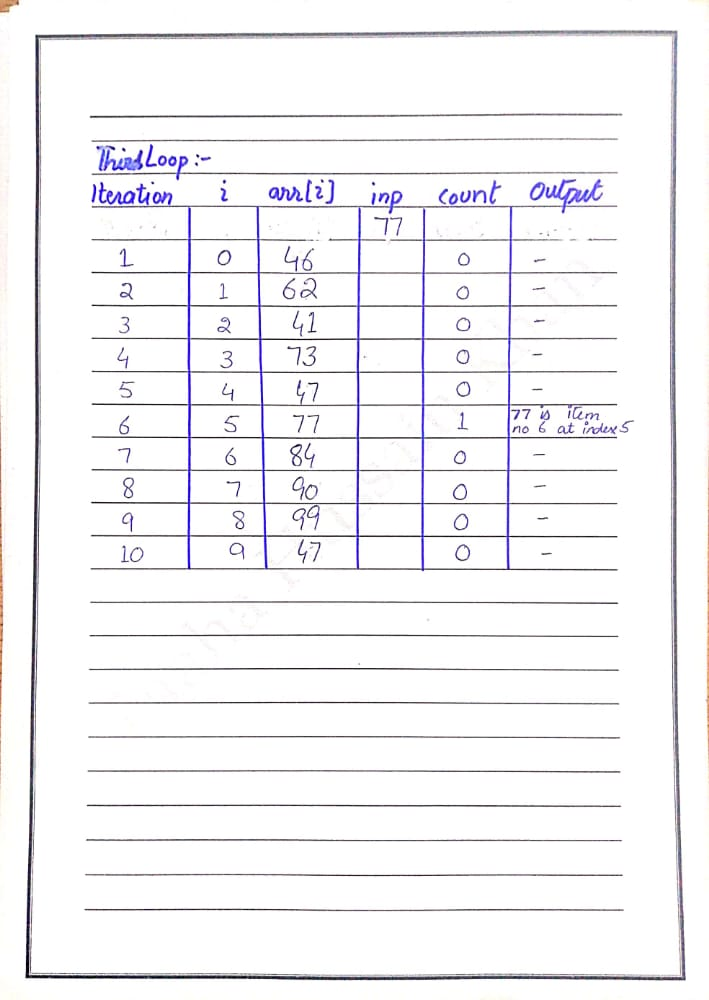 Third Loop :-
Iteration i arr[i] inp count Output
77
1 0 46 0 -
2 1 62 0 -
3 2 41 0 -
4 3 73 0 -
5 4 47 0 -
6 5 77 1 77 is item no 6 at index 5
7 6 84 0 -
8 7 90 0 -
9 8 99 0 -
10 9 47 0 -